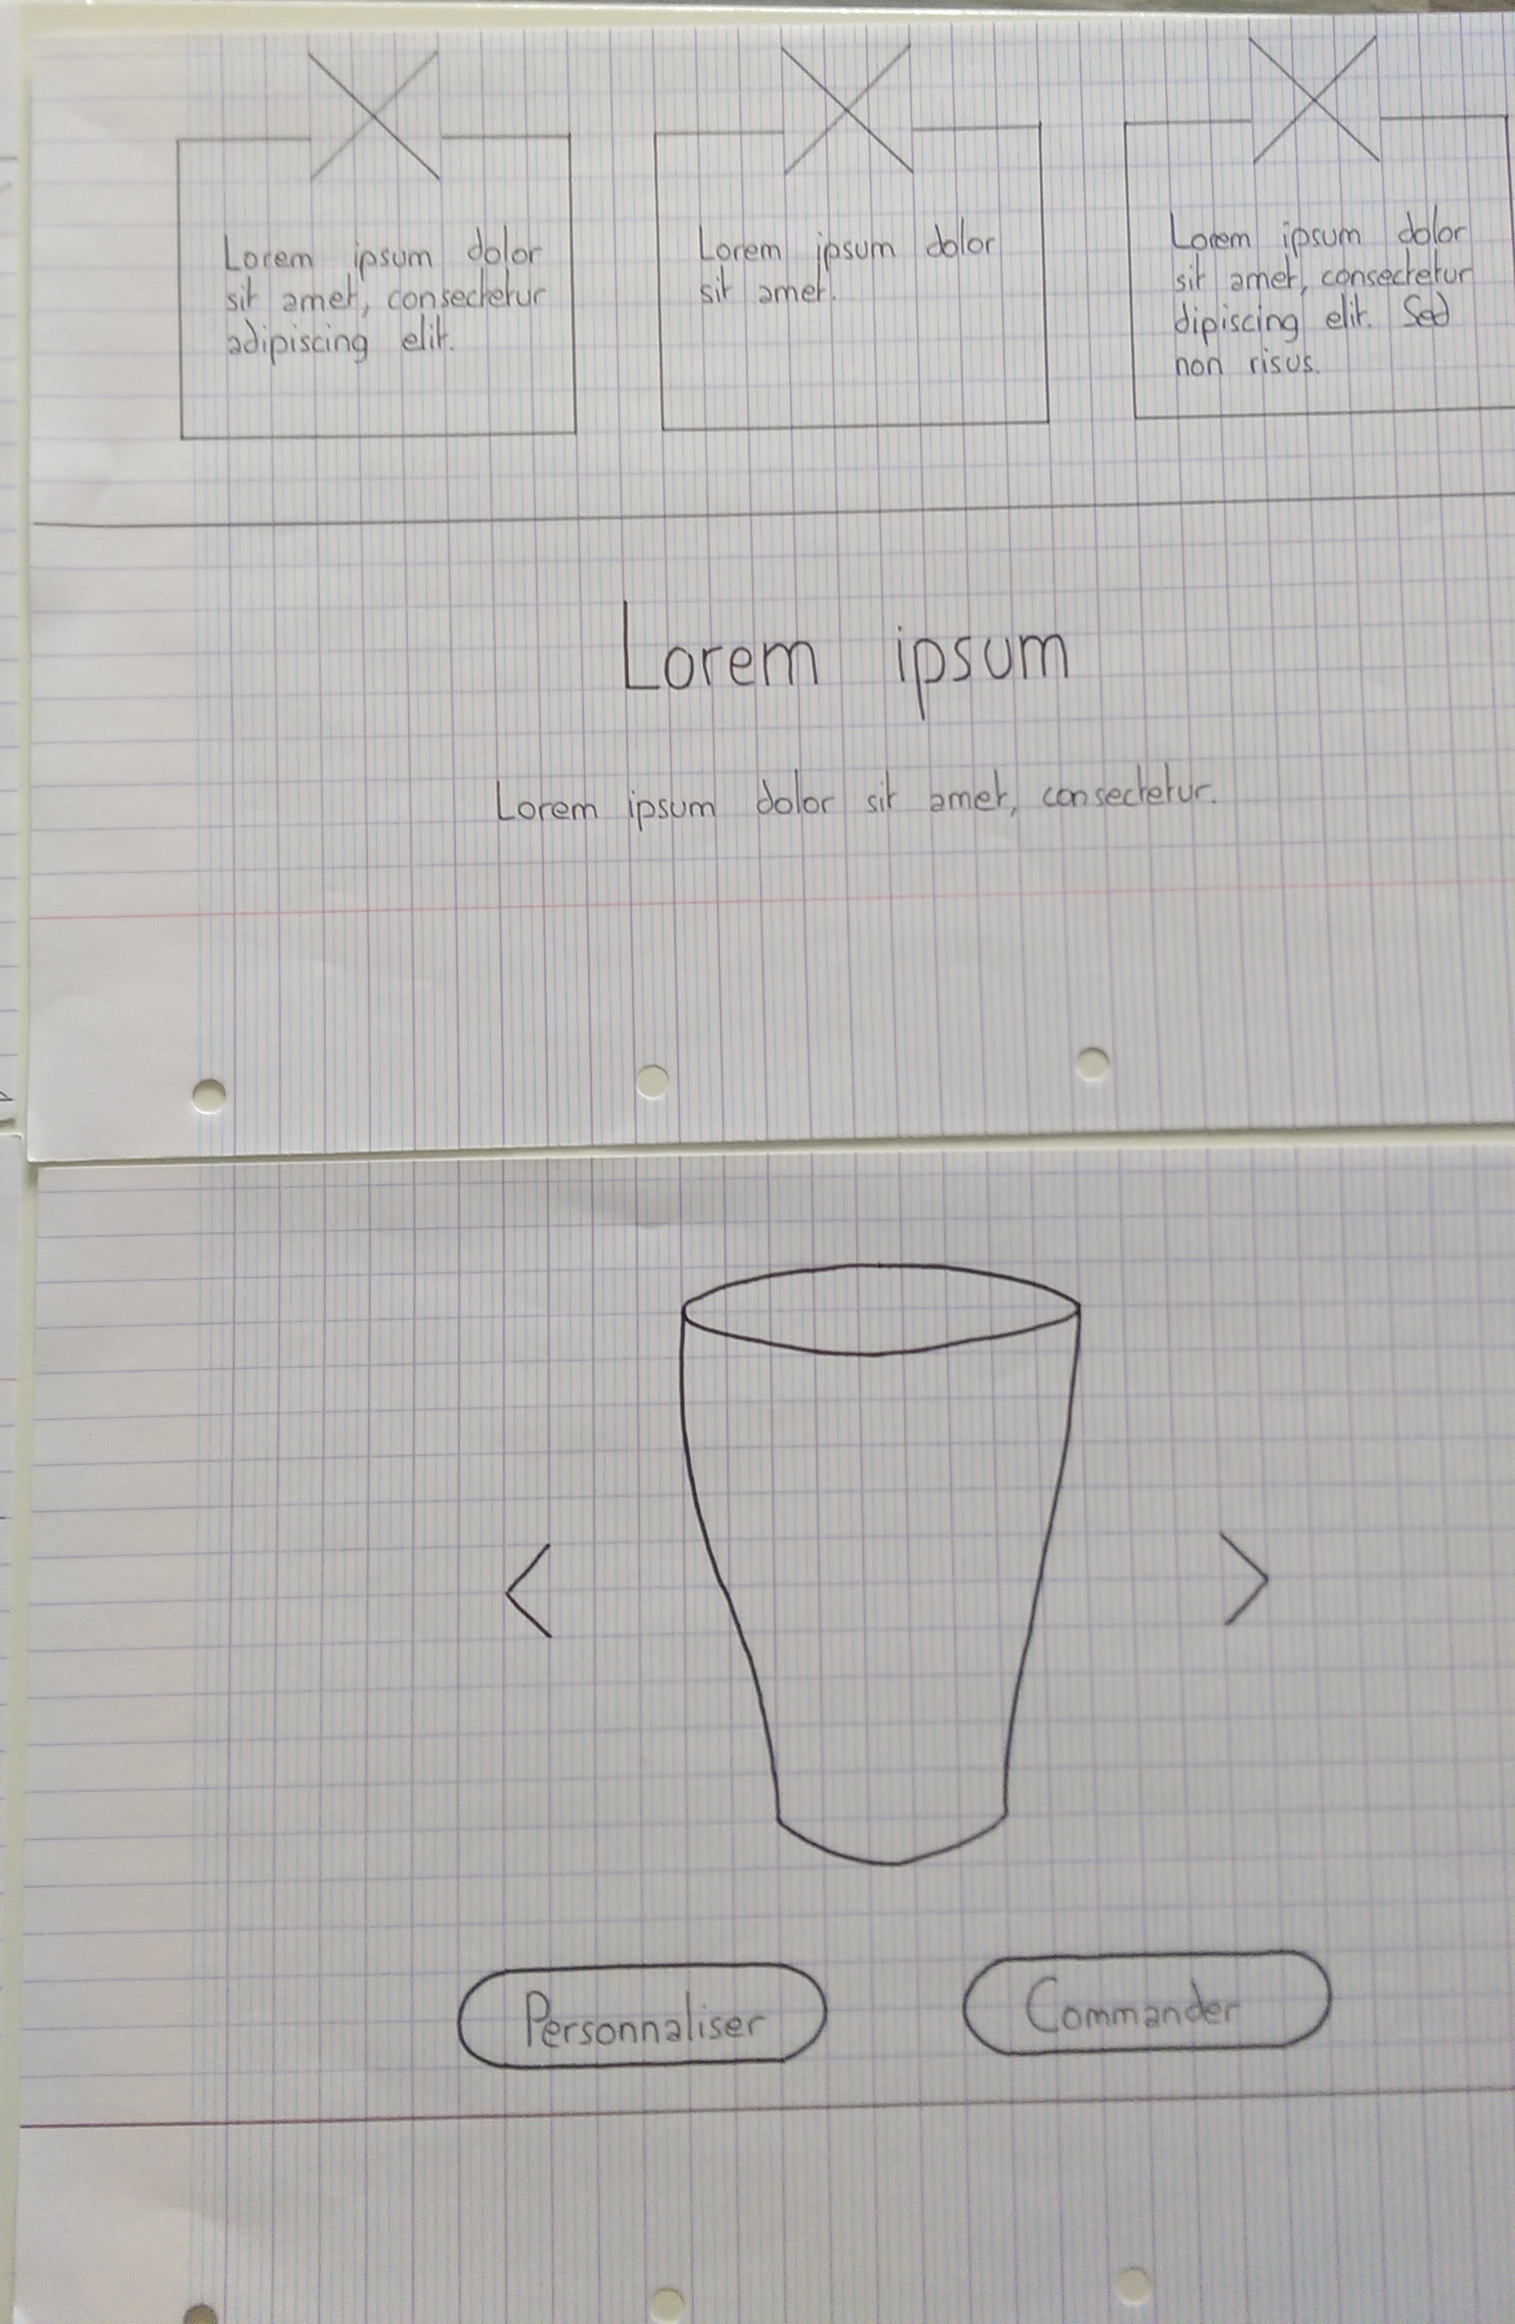 Lorem ipsum dolor
sit amet, consectetur
adipiscing elit.
Lorem ipsum dolor
sit amet.
Lorem ipsum dolor
sit amet, consectetur
dipiscing elit. Sed
non risus.
Lorem ipsum
Lorem ipsum dolor sit amet, consectetur.
<
>
Personnaliser
Commander